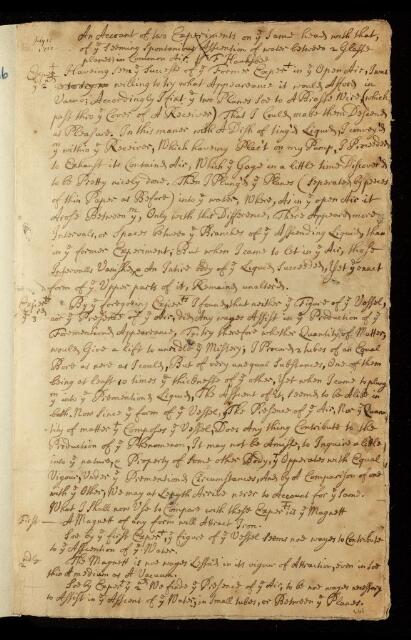 An Account of two Experiments on ye Same head with that,
of ye Seeming Spontanious Assention of water between 2 Glass
plaines in Common Air,
Haveing seen ye Success of ye Former Expert in ye Open Air, I was
willing to try what Appearance it would Afford in
Vacuo; Accordingly I fixt ye two Planes Soe to A Brass Wire (which
past thro ye Cover of A Receiver) That I Could make them Descend
at Pleasure. In this maner with A Dish of ting'd Liquid, I convey'd
ym within ye Receiver, Which haveing Plac't on my Pump, I Proceeded
to Exhaust its Containd Air, Which ye Gage in a little time Discover'd
to be Pretty nicely done. Then I Plung'd ye Planes (seperated by peices
of thin Paper as Before) into ye water, Where, As in ye open Air it
Arose Between ym; Only with this Difference, There Appeared more
Intervals, or Spaces between ye Branches of ye Assending Liquid, than
in ye former Experiment; But when I came to let in ye Air, those
Intervalls Vanish't, An Intire body of ye Liquid Succeeded, Yet ye exact
form of ye Upper parts of it, Remained unaltered.
By ye foregoeing Expert I found that neither ye Figure of ye Vessel,
nor ye Presence of ye Air, did Any wayes Assist in ye Production of ye
Forementioned Appearance, To try therefore whether Quantity of Matter,
would Give a lift to unridle ye Mistery; I Provided 2 tubes of an Equal
Bore as neer as I could, But of very unequal Substances, One of them
being at least 10 times ye thickness of ye other, Yet when I came to plung
ym into ye Prementioned Liquid, The Assent of it seems to be Alike in
both. Now since ye form of ye Vessel, The Presence of ye Air, Nor ye Quan
tity of matter yt Composes ye Vessel, Does Any thing Contribute to the
Production of ye Phenomenon, It may not be Amiss, to Inquire a little
into ye nature, & Property of Some other Body, yt Opperates with Equal
Vigour, Under ye Prementioned Circumstances, And by A Comparison of one
with ye Other, We may at Length Arrive nerer to Account for ye Same.
What I Shall now Use to Compare with these Experts is ye Magnett
First A Magnett of any form will Attract Iron.
Soe by ye first Expert ye figure of ye Vessel seems noe wayes to Contribute
to ye Assention of ye Water.
2ndly The Magnett is noe wayes Lessen'd in its vigour of Attraction, even in soe
thin A medium as A Vacuum.
Soe by Expert ye 2d We finde ye Presence of ye Air, to be noe wayes necessary
to Assist in ye Assent of ye Water, in Small tubes, or Between ye Planes.